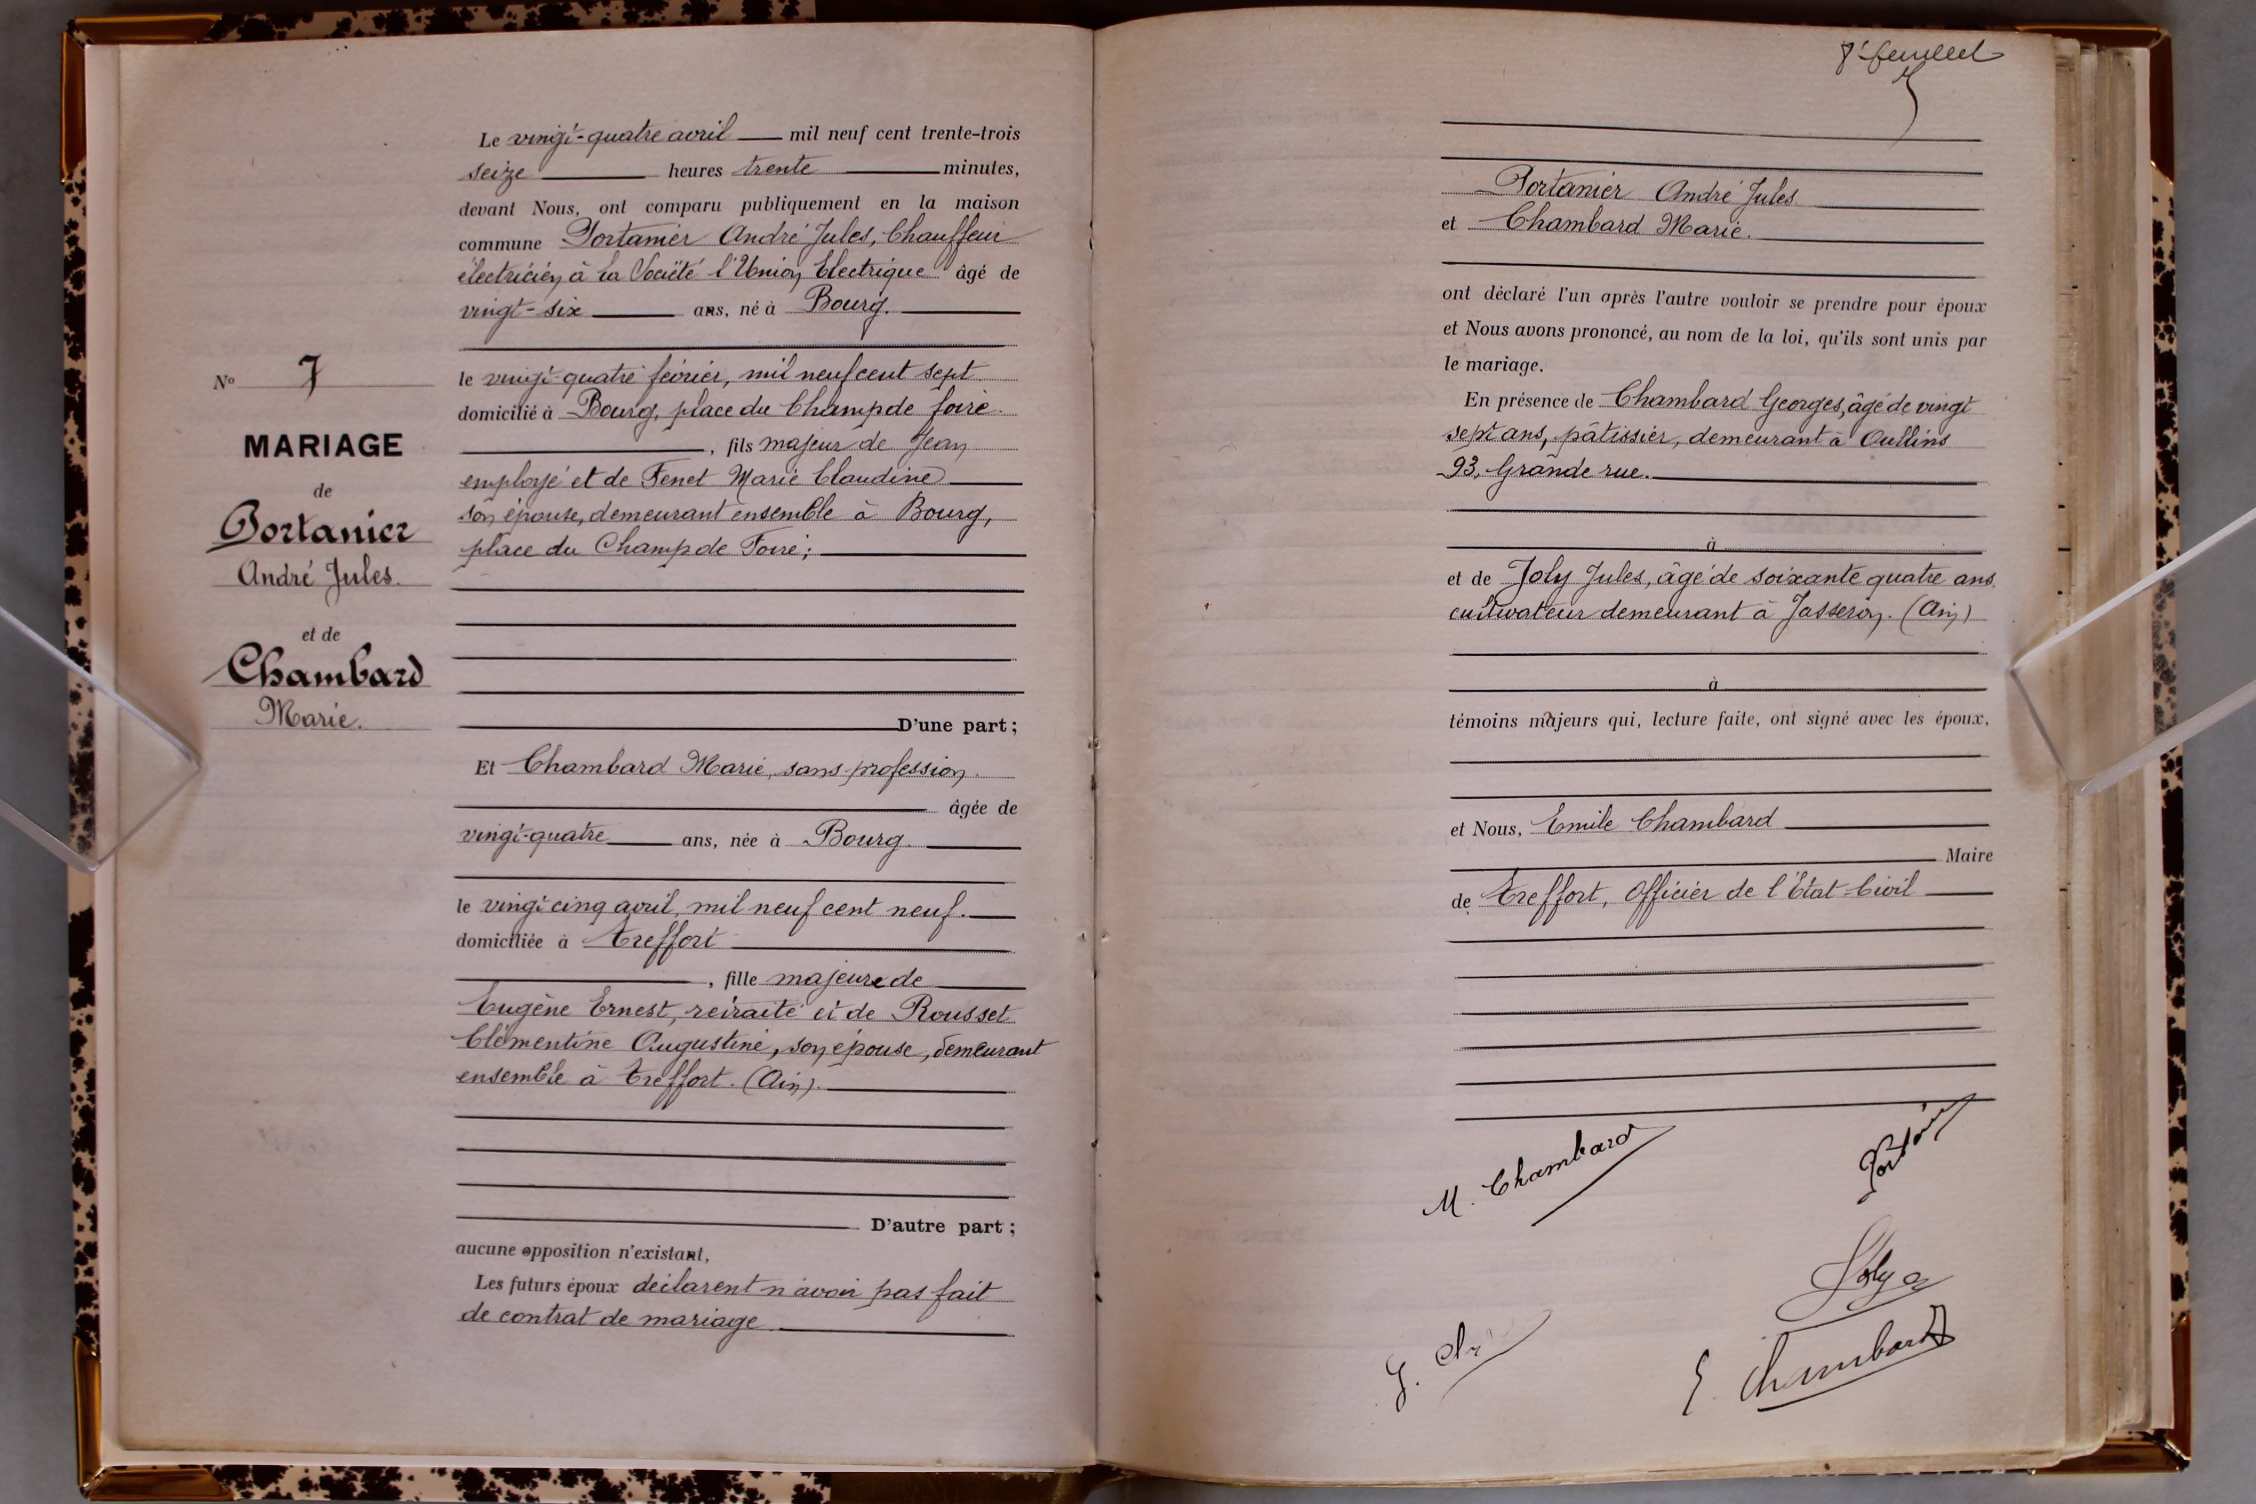 Le vingt-quatre avril mil neuf cent trente-trois
seize heures trente minutes,
devant Nous, ont comparu publiquement en la maison
commune Portanier André Jules, Chauffeur
électricien à la Société l'Union Electrique âgé de
vingt-six ans, né à Bourg.
le vingt-quatre février, mil neuf cent sept
domicilié à Bourg, place du Champ de foire.
, fils majeur de Jean
employé et de Fenet Marie Claudine
son épouse, demeurant ensemble à Bourg,
place du Champ de Foire;
D'une part;
Et Chambard Marie, sans profession.
âgée de
vingt-quatre ans, née à Bourg.
le vingt cinq avril, mil neuf cent neuf.
domiciliée à Treffort
, fille majeure de
Eugène Ernest, retraité et de Rousset
Clémentine Augustine, son épouse, demeurant
ensemble à Treffort. (Ain).
D'autre part;
aucune opposition n'existant,
Les futurs époux déclarent n'avoir pas fait
de contrat de mariage
No 7
MARIAGE
de
Portanier
André Jules.
et de
Chambard
Marie.
feuillet
Portanier André Jules
et Chambard Marie.
ont déclaré l'un après l'autre vouloir se prendre pour époux
et Nous avons prononcé, au nom de la loi, qu'ils sont unis par
le mariage.
En présence de Chambard Georges, âgé de vingt
sept ans, pâtissier, demeurant à Oullins
93, Grande rue.
à
et de Joly Jules, âgé de soixante quatre ans
cultivateur demeurant à Jasseron. (Ain)
à
témoins majeurs qui, lecture faite, ont signé avec les époux,
et Nous, Emile Chambard
Maire
de Treffort, Officier de l'Etat-Civil
M. Chambard
Joly
G.
E. Chambard